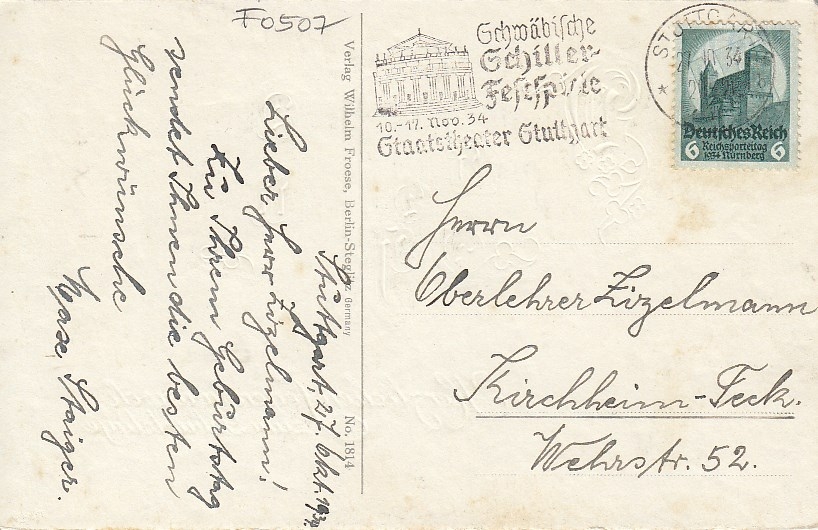 F0507
Schwäbische
Schiller-
Festspiele
10.-17. Nov. 34
Staatstheater Stuttgart
STUTTGART
27.10.34
Deutsches Reich
6 Reichsparteitag 6
1934 Nürnberg
Verlag Wilhelm Froese, Berlin-Steglitz Germany No. 1814
Stuttgart, 27. Okt. 1934
Lieber Herr Zizelmann!
Zu Ihrem Geburtstag
sendet Ihnen die besten
Glückwünsche
Staiger.
Herrn
Oberlehrer Zizelmann
Kirchheim-Teck.
Wehrstr. 52.